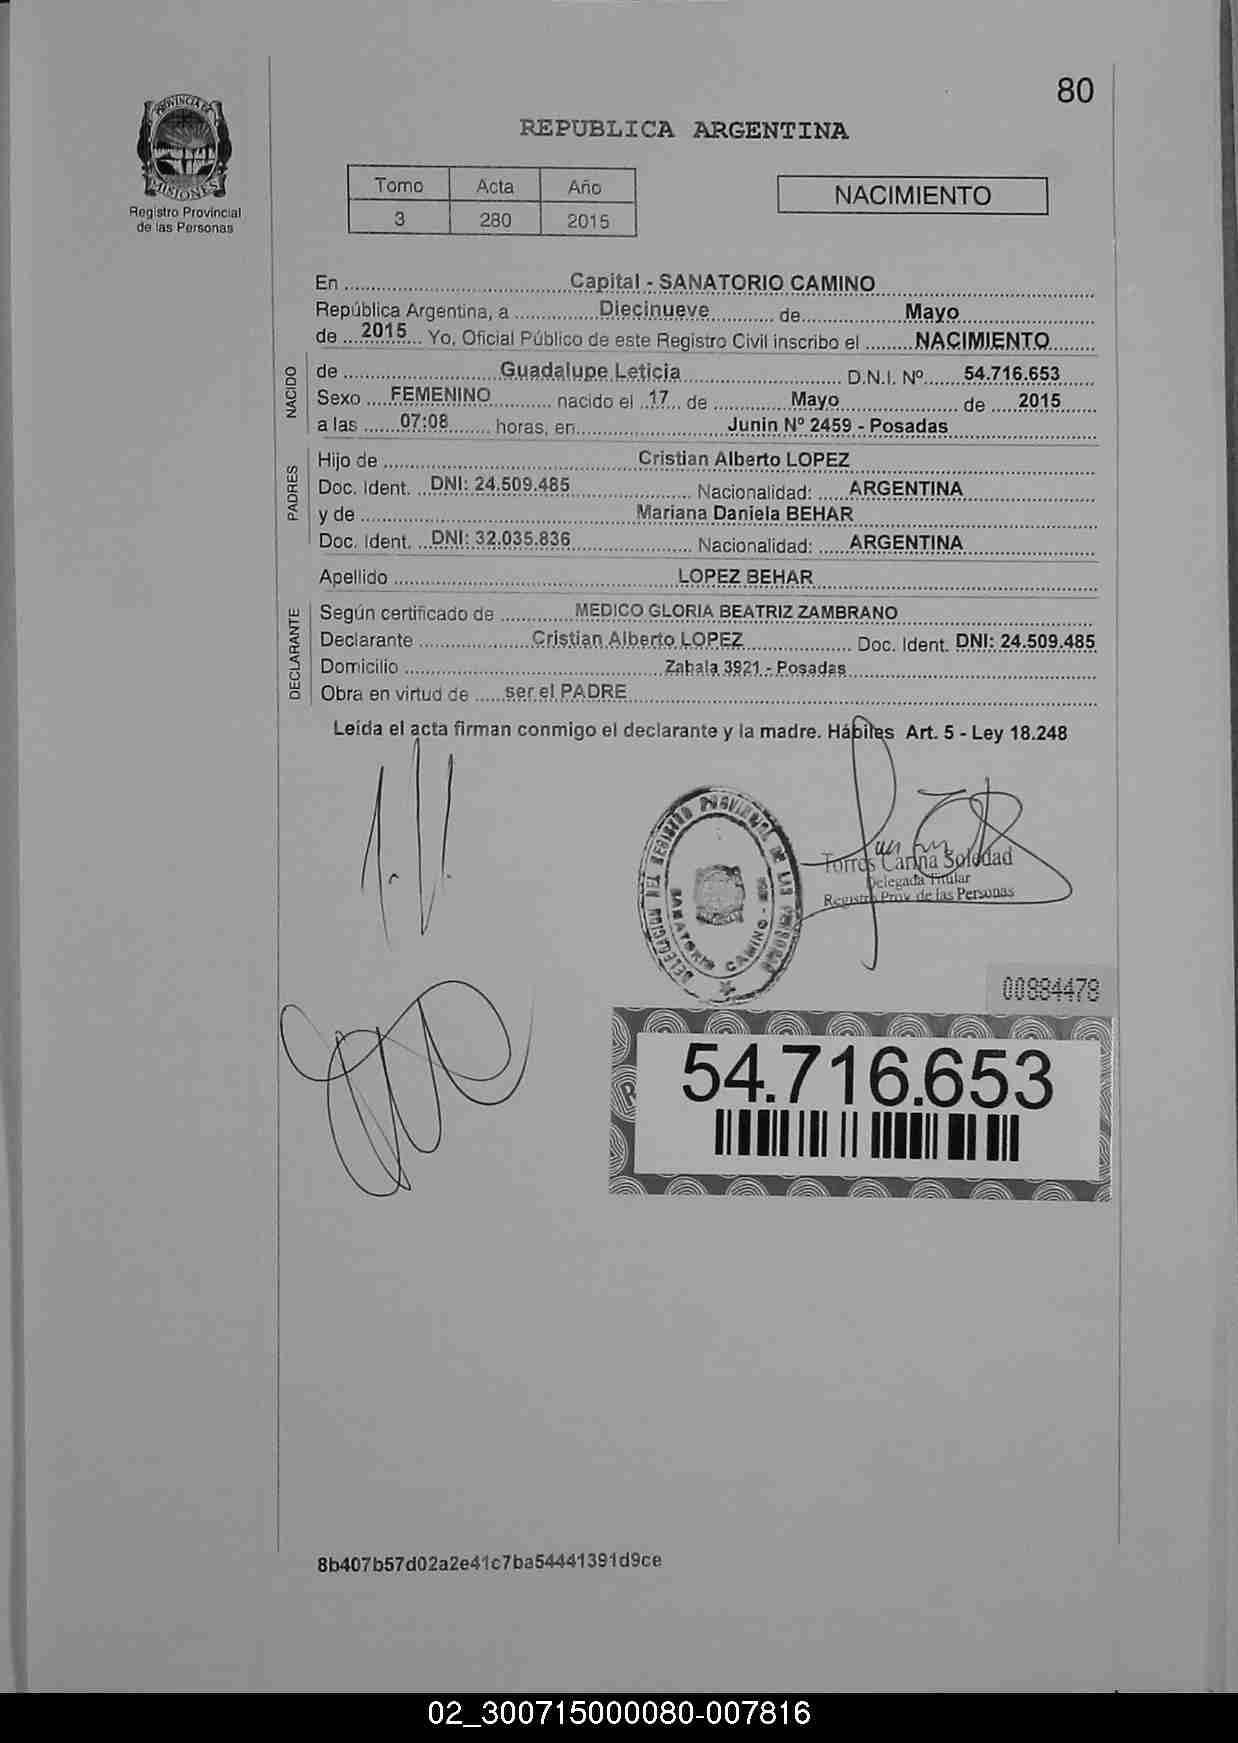 80
PROVINCIA DE
MISIONES
Registro Provincial
de las Personas
REPUBLICA ARGENTINA
Tomo Acta Año
3 280 2015
NACIMIENTO
En Capital - SANATORIO CAMINO
República Argentina, a Diecinueve de Mayo
de 2015 Yo, Oficial Público de este Registro Civil inscribo el NACIMIENTO
NACIDO
de Guadalupe Leticia D.N.I. Nº 54.716.653
Sexo FEMENINO nacido el 17 de Mayo de 2015
a las 07:08 horas, en Junin Nº 2459 - Posadas
PADRES
Hijo de Cristian Alberto LOPEZ
Doc. Ident. DNI: 24.509.485 Nacionalidad: ARGENTINA
y de Mariana Daniela BEHAR
Doc. Ident. DNI: 32.035.836 Nacionalidad: ARGENTINA
Apellido LOPEZ BEHAR
DECLARANTE
Según certificado de MEDICO GLORIA BEATRIZ ZAMBRANO
Declarante Cristian Alberto LOPEZ Doc. Ident. DNI: 24.509.485
Domicilio Zabala 3921 - Posadas
Obra en virtud de ser el PADRE
Leída el acta firman conmigo el declarante y la madre. Hábiles Art. 5 - Ley 18.248
DELEGACION DEL REGISTRO PROVINCIAL DE LAS PERSONAS
SANATORIO CAMINO
Torres Carina Soledad
Delegada Titular
Registro Prov. de las Personas
00884478
54.716.653
8b407b57d02a2e41c7ba54441391d9ce
02_300715000080-007816